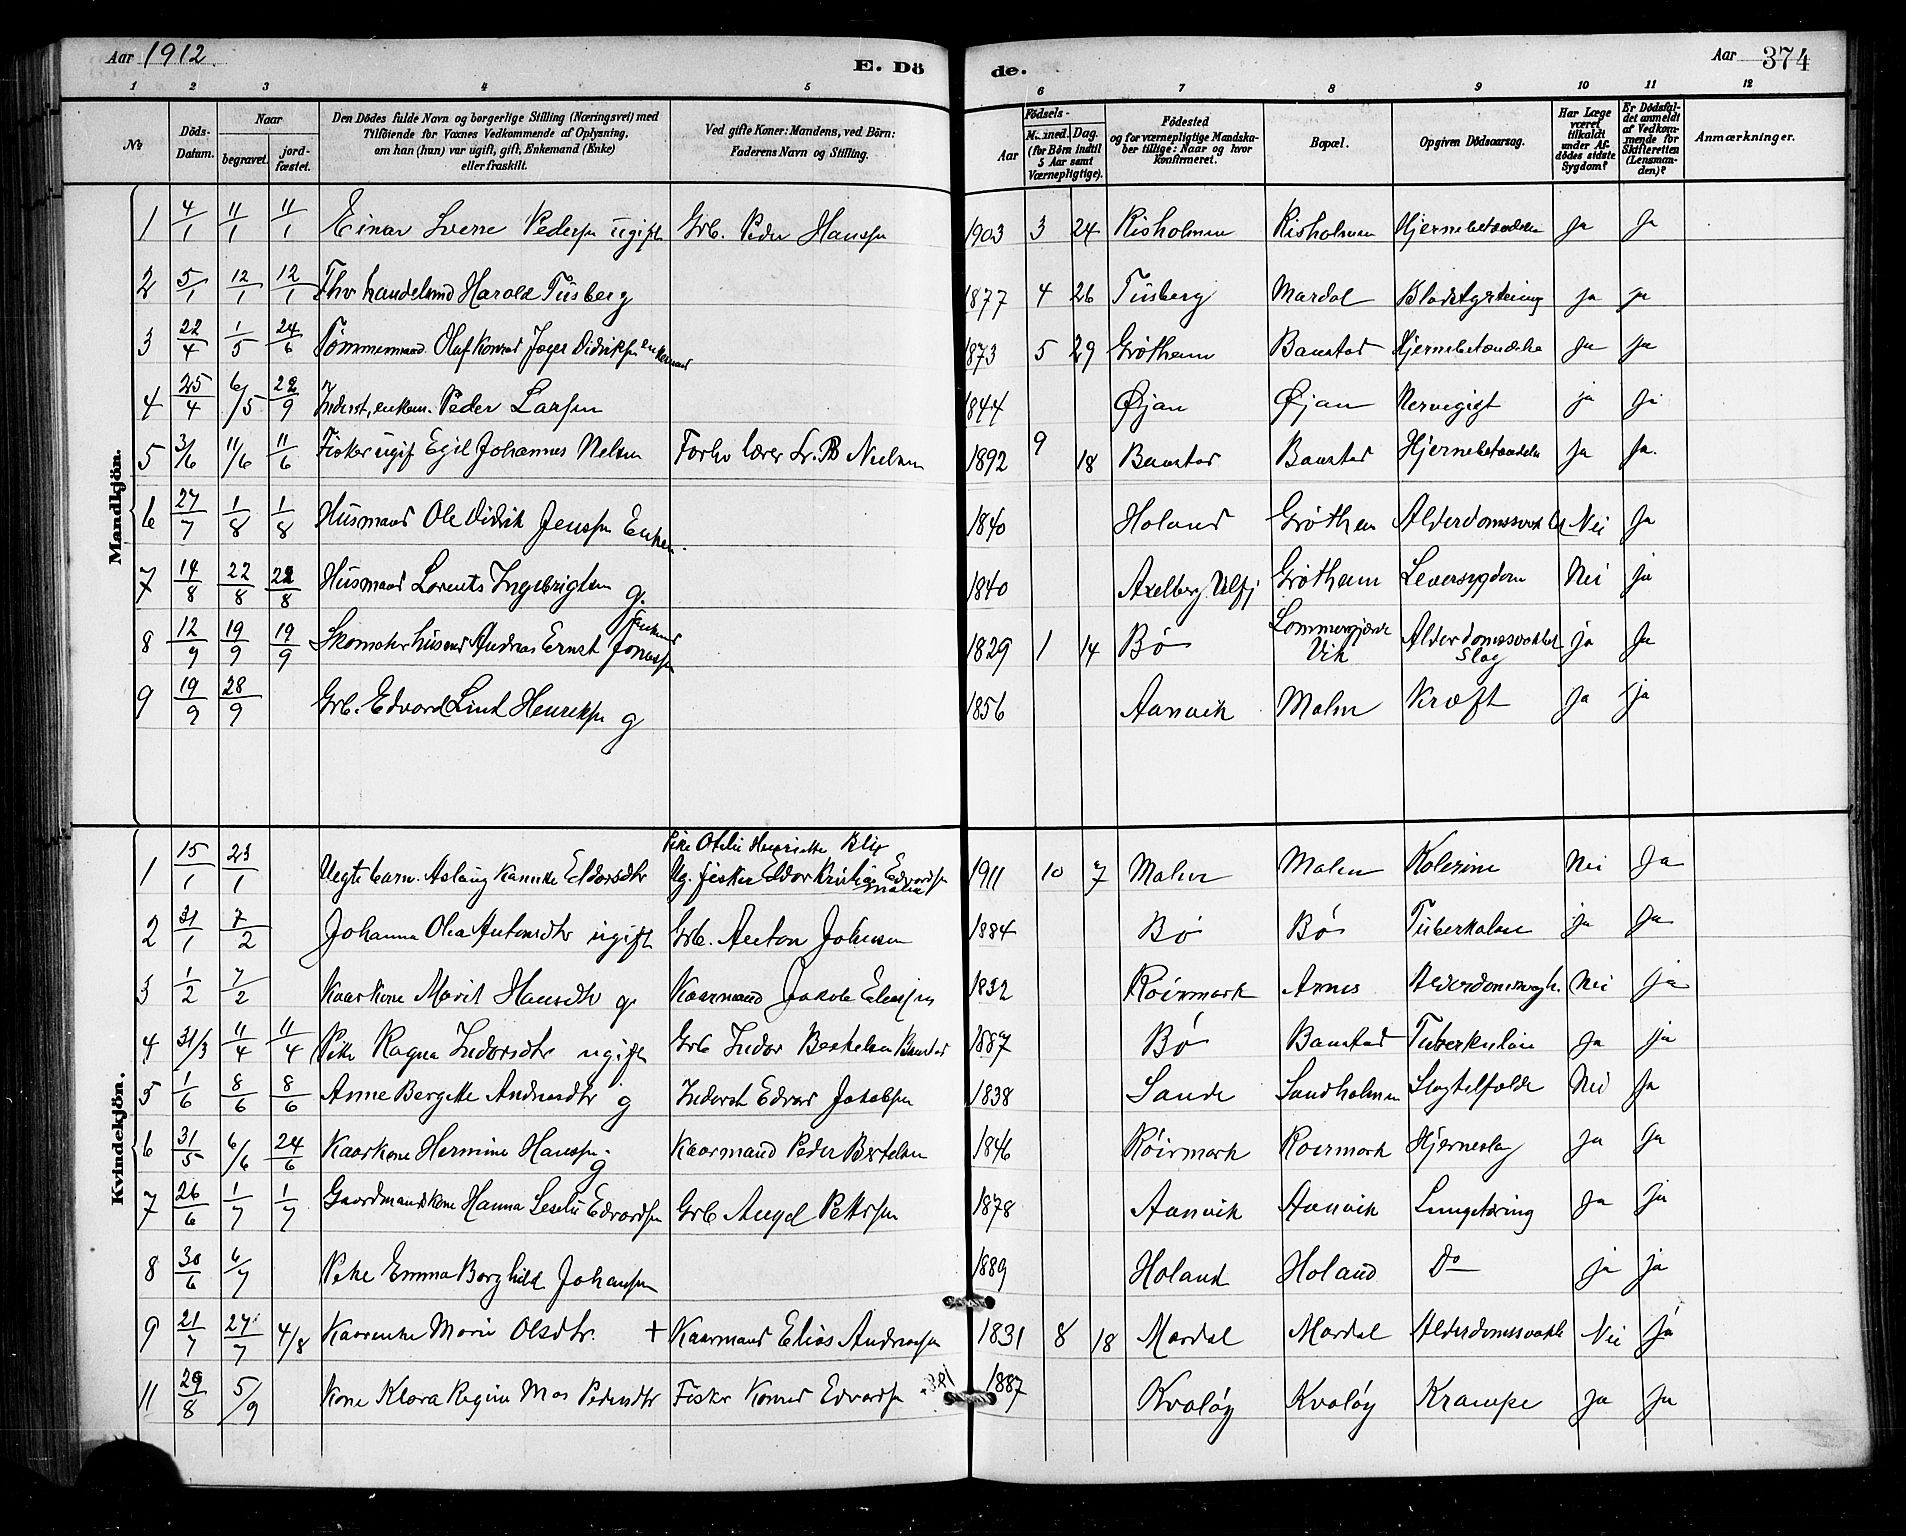 Aar 1912.
E. Dö
de.
Aar 374
1 2 3 4 5 6 7 8 9 10 11 12
№
Döds-Datum.
Naar
begravet.
jordfæstet.
Den Dödes fulde Navn og borgerlige Stilling (Næringsvei) med
Tilföiende for Voxnes Vedkommende af Oplysning,
om han (hun) var ugift, gift, Enkemand (Enke)
eller fraskilt.
Ved gifte Koner: Mandens, ved Börn:
Faderens Navn og Stilling.
Födsels-
Aar
Maaned. Dag.
(for Börn indtil
5 Aar samt
Værnepligtige).
Födested
og for værnepligtige Mandskaber tillige: Naar og hvor
Konfirmeret.
Bopæl.
Opgiven Dödsaarsag.
Har Læge
været
tilkaldt
under Afdödes sidste
Sygdom?
Er Dödsfaldet anmeldt
af Vedkommende for
Skifteretten
(Lensmanden)?
Anmærkninger.
Mandkjön.
1 4/1 11/1 11/1 Einar Sverre Pedersen ugift Grb. Peder Hanssen 1903 3 24 Risholmen Risholmen Hjernebetændelse ja ja
2 5/1 12/1 12/1 Fhv handelsmd Harold Tilsberg 1877 4 26 Tilsberg Mardal Blodstyrtning ja ja
3 22/4 1/5 24/6 Tømmermand Olaf Konrad Didriksen enkemand 1873 5 29 Grøtheim Baustad Hjernebetændelse ja ja
4 25/4 6/5 22/9 Inderst, enkem. Peder Larsen 1844 Øijan Øijan Nervegigt ja ja
5 3/6 11/6 11/6 Fisker ugift Egil Johannes Nelsen Forhv lærer Nielsen 1892 9 18 Baustad Baustad Hjernebetændelse ja ja.
6 27/7 1/8 1/8 Husmand Ole Didrik Jenssen Enkem. 1840 Holand Grøtheim Alderdomssvakhet Nei ja
7 14/8 22/8 22/8 Husmand Lorents Ingebrigtsen g. 1840 Axelberg Velfj Grøtheim Leversygdom Nei ja
8 12/9 19/9 19/9 Skomaker husmd Andreas Ernst Jonassen Enkemd 1829 1 14 Bø Vik Alderdomssvakhet Slag ja ja
9 19/9 28/9 Grb. Edvard Lind Henriksen g 1856 Aanvik Malm Kræft ja ja
Kvindekjön.
Pike Otelie Henriette Blix
1 15/1 23/1 Uegte barn. Aslaug Eldorsdtr Ug. fisker Eldor Kristian Edvardsen Malm 1911 10 7 Malm Malm Kolerine Nei ja
2 31/1 7/2 Johanna Olea Antonsdtr ugift Grb. Anton Johnsen 1884 Bø Bø Tuberkulose ja ja
3 1/2 7/2 Kaarkone Marit Hansdtr g. Kaarmand Jakob Eliassen 1832 Røirmark Arnes Alderdomssvagh. Nei ja
4 31/3 11/4 11/4 Pike Ragna Indorsdtr ugift Grb Indor Bertelsen Baustad 1887 Bø Baustad Tuberkulose ja ja
5 1/6 8/6 8/6 Anne Bergitte Andreasdtr g Inderst Edvard Jakobsen 1838 Sande Sandholmen Slagtilfælde Nei ja
6 31/5 6/6 24/6 Kaarkone Hermine Hanssen g Kaarmand Peder Bertelsen 1846 Røirmark Røirmark Hjerneslag ja ja
7 26/6 1/7 1/7 Gaardmandskone Hanna Edvardsen Grb Angel Pettersen 1878 Aanvik Aanvik Lungetæring ja ja
8 30/6 6/7 Pike Emma Borghild Johansen 1889 Holand Holand Do ja ja
9 21/7 27/7 4/8 Kaarenke Marie Olsdtr. + Kaarmand Elias Andreassen 1831 8 18 Mardal Mardal Alderdomssvakh Nei ja
11 29/8 5/9 Kone Klara Regine Pedersdtr Fisker Konrad Edvardsen 1887 Kvaløy Kvaløy Krampe ja ja